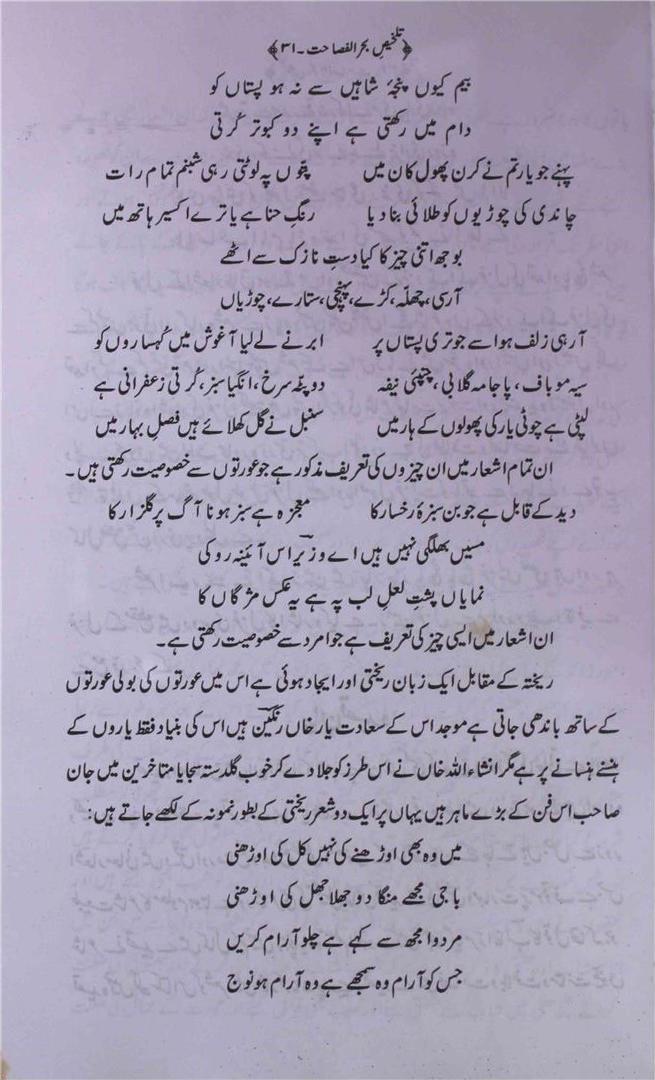 ﴿تلخیصِ بحر الفصاحت۔۳۱﴾
بیم کیوں پنجۂ شاہیں سے نہ ہو پستاں کو
دام میں رکھتی ہے اپنے دو کبوتر کُرتی
پہنے جو یار تم نے کرن پھول کان میں پتوں پہ لوٹتی رہی شبنم تمام رات
چاندی کی چوڑیوں کو طلائی بنا دیا رنگِ حنا ہے یا ترے اکسیر ہاتھ میں
بوجھ اتنی چیز کا کیا دستِ نازک سے اٹھے
آرسی، چھلّہ، کڑے، پہنچی، ستارے، چوڑیاں
آ رہی زلف ہوا سے جو تری پستاں پر ابر نے لے لیا آغوش میں کُہساروں کو
سیہ موباف، پاجامہ گلابی، چنپئی نیفہ دوپٹہ سرخ، انگیا سبز، کُرتی زعفرانی ہے
لپٹی ہے چوٹی یار کی پھولوں کے ہار میں سنبل نے گل کھلائے ہیں فصلِ بہار میں
ان تمام اشعار میں ان چیزوں کی تعریف مذکور ہے جو عورتوں سے خصوصیت رکھتی ہیں۔
دید کے قابل ہے جوبن سبزۂ رخسار کا معجزہ ہے سبز ہونا آگ پر گلزار کا
مسیں بھلگی نہیں ہیں اے وزیرؔ اس آئینہ رو کی
نمایاں پشتِ لعلِ لب پہ ہے یہ عکس مژگاں کا
ان اشعار میں ایسی چیز کی تعریف ہے جو امرد سے خصوصیت رکھتی ہے۔
ریختہ کے مقابل ایک زبان ریختی اور ایجاد ہوئی ہے اس میں عورتوں کی بولی عورتوں
کے ساتھ باندھی جاتی ہے موجد اس کے سعادت یار خاں رنگینؔ ہیں اس کی بنیاد فقط یاروں کے
ہنسنے ہنسانے پر ہے مگر انشاء اللہ خاں نے اس طرز کو جلا دے کر خوب گلدستہ سجایا متاخرین میں جان
صاحب اس فن کے بڑے ماہر ہیں یہاں پر ایک دو شعر ریختی کے بطور نمونہ کے لکھے جاتے ہیں:
میں وہ بھی اوڑھنے کی نہیں کل کی اوڑھنی
باجی مجھے منگا دو جھلا جھل کی اوڑھنی
مردوا مجھ سے کہے ہے چلو آرام کریں
جس کو آرام وہ سمجھے ہے وہ آرام ہو نوج